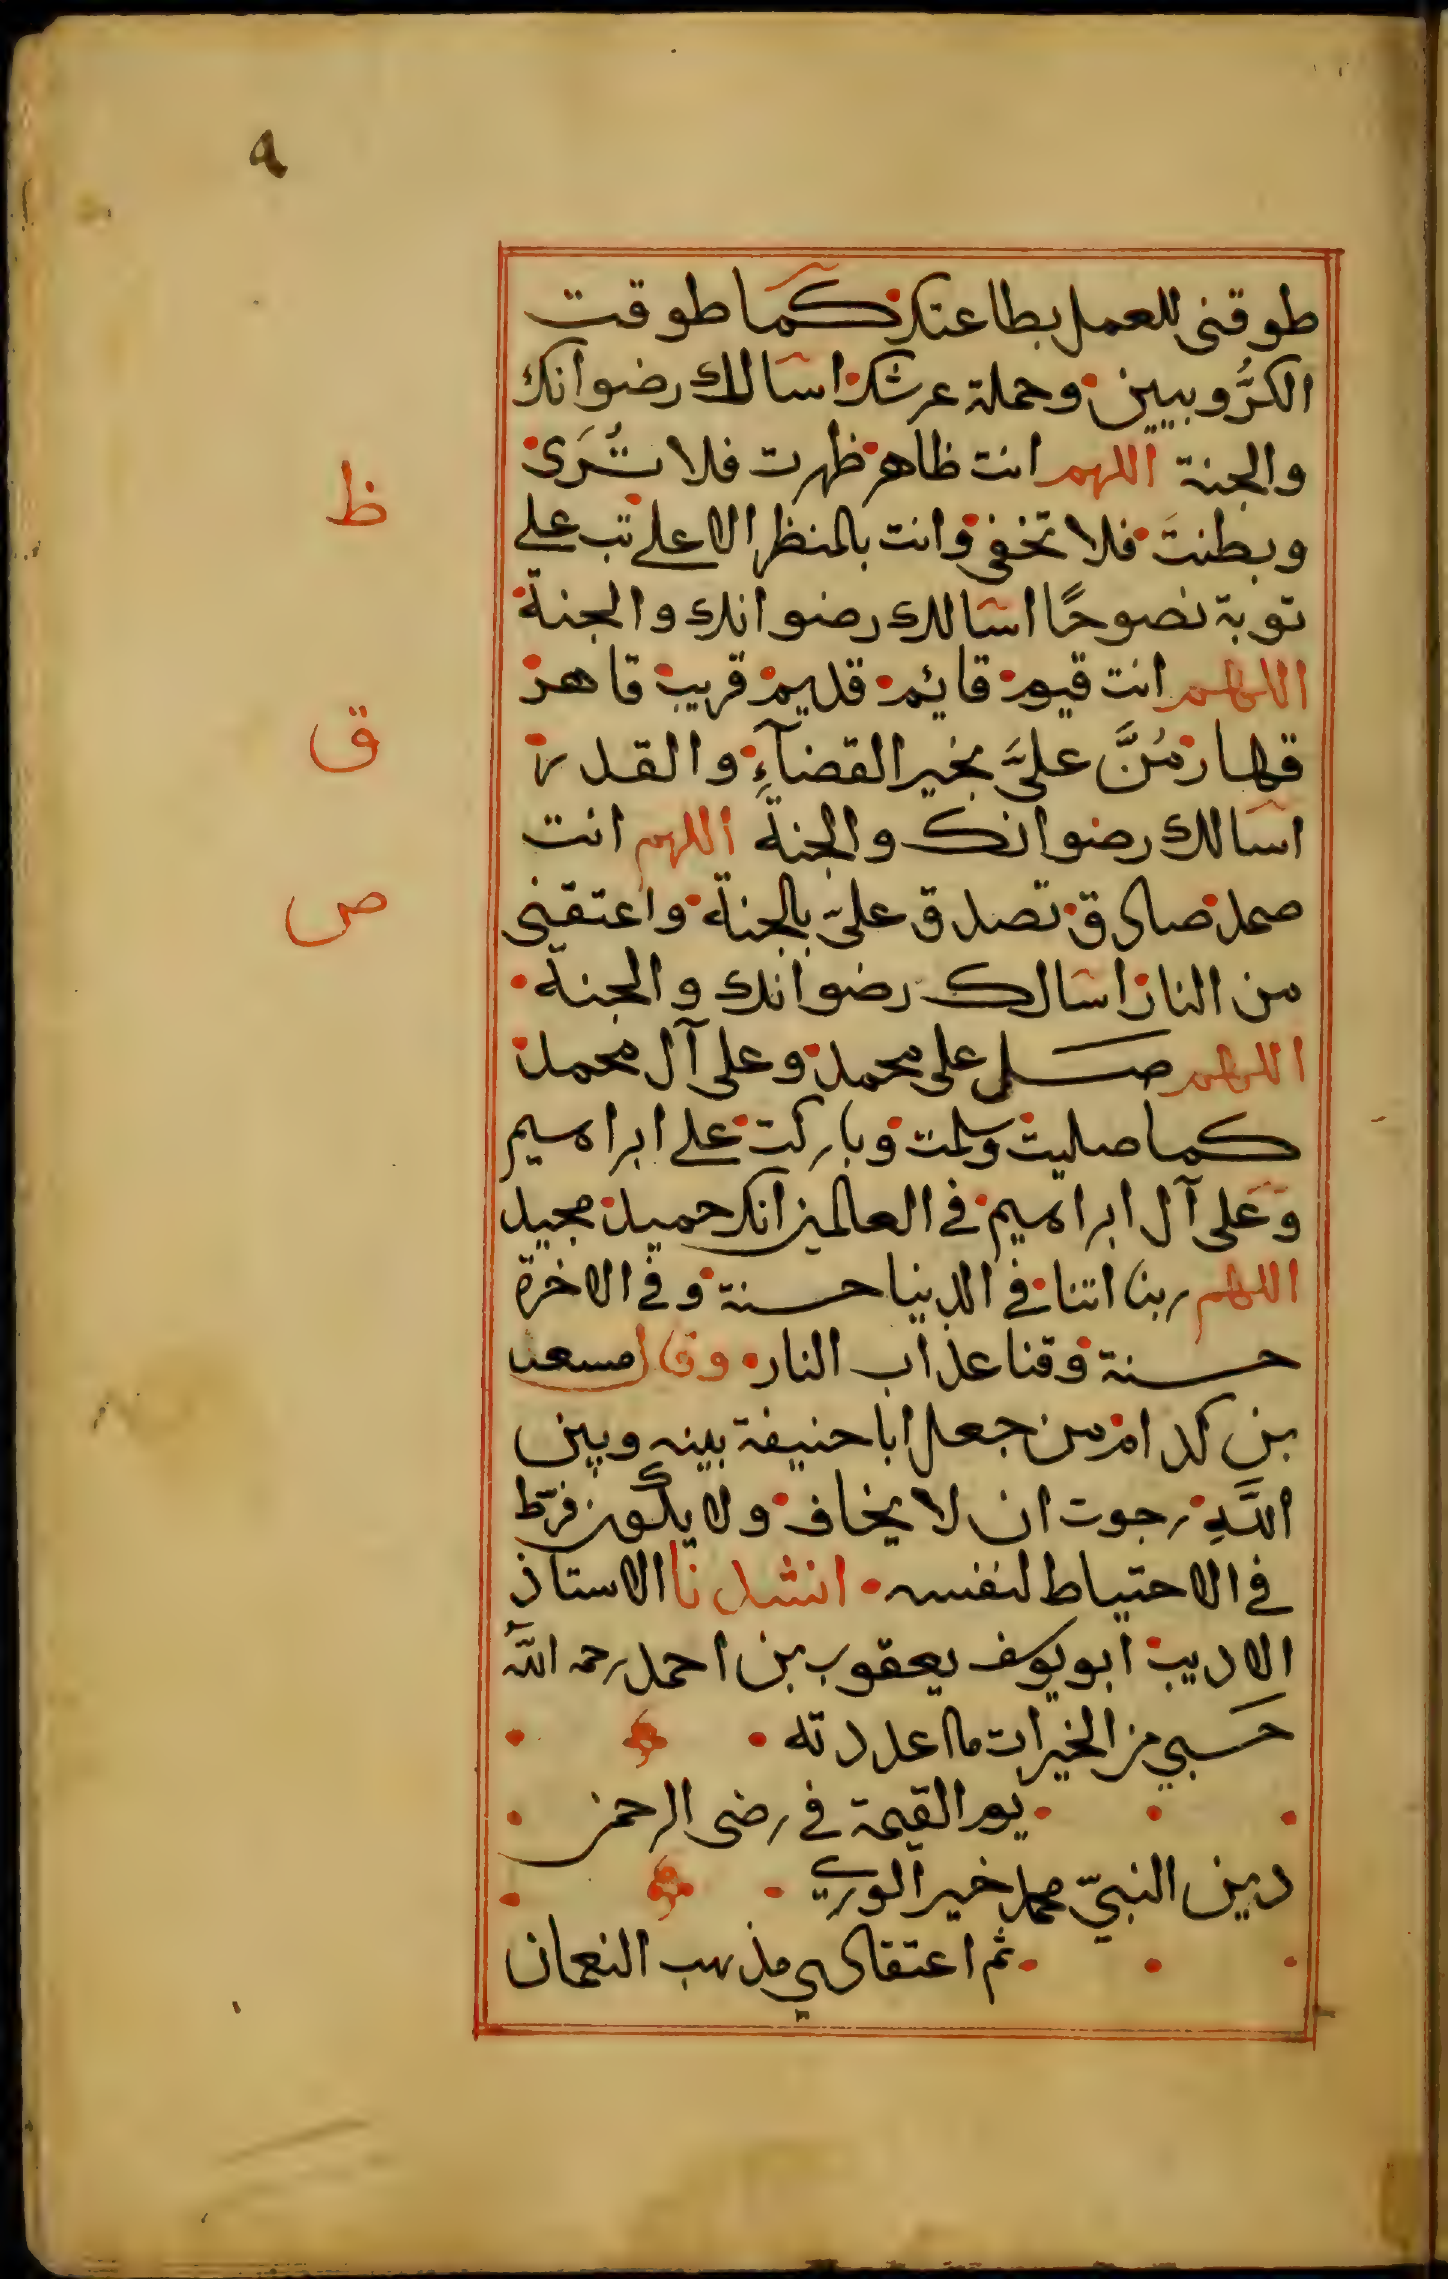 ٩
طوقنى للعمل بطاعتك كما طوقت
الكرُّوبيين وحملة عرشك اسالك رضوانك
والجنة اللهم انت ظاهر ظهرت فلا تُرَى
ظ
وبطنتَ فلا تخفى وانت بالمنظر الاعلى تب على
توبة نصوحًا اسالك رضوانك والجنة
اللهم انت قيوم قائم قديم قريب قاهر
ق
قهار مُنَّ علىَّ بخير القضآءِ والقدر
اسالك رضوانك والجنة اللهم انت
ص
صمد صادق تصدق علىّ بالجنة واعتقنى
من النار اسالك رضوانك والجنة
اللهم صل على محمد وعلى آل محمد
كما صليت وسلمت وباركت على ابراهيم
وَعَلى آل ابراهيم فى العالمين انك حميد مجيد
اللهم ربنا اتنا فى الدنيا حسنة وفى الاخرة
حسنة وقنا عذاب النار وقال مسعد
بن كدام من جعل ابا حنيفة بينه وبين
اللَّهِ رجوت ان لا يخاف ولا يكون فرّط
فى الاحتياط لنفسه انشدنا الاستاذ
الاديب ابو يوسف يعقوب بن احمد رحمه اللّه
حَسبي من الخيرات ما اعددته
يوم القيمة فى رضى الرحمن
دين النبىّ محمد خير الورى
ثم اعتقادى مذهب النعمان